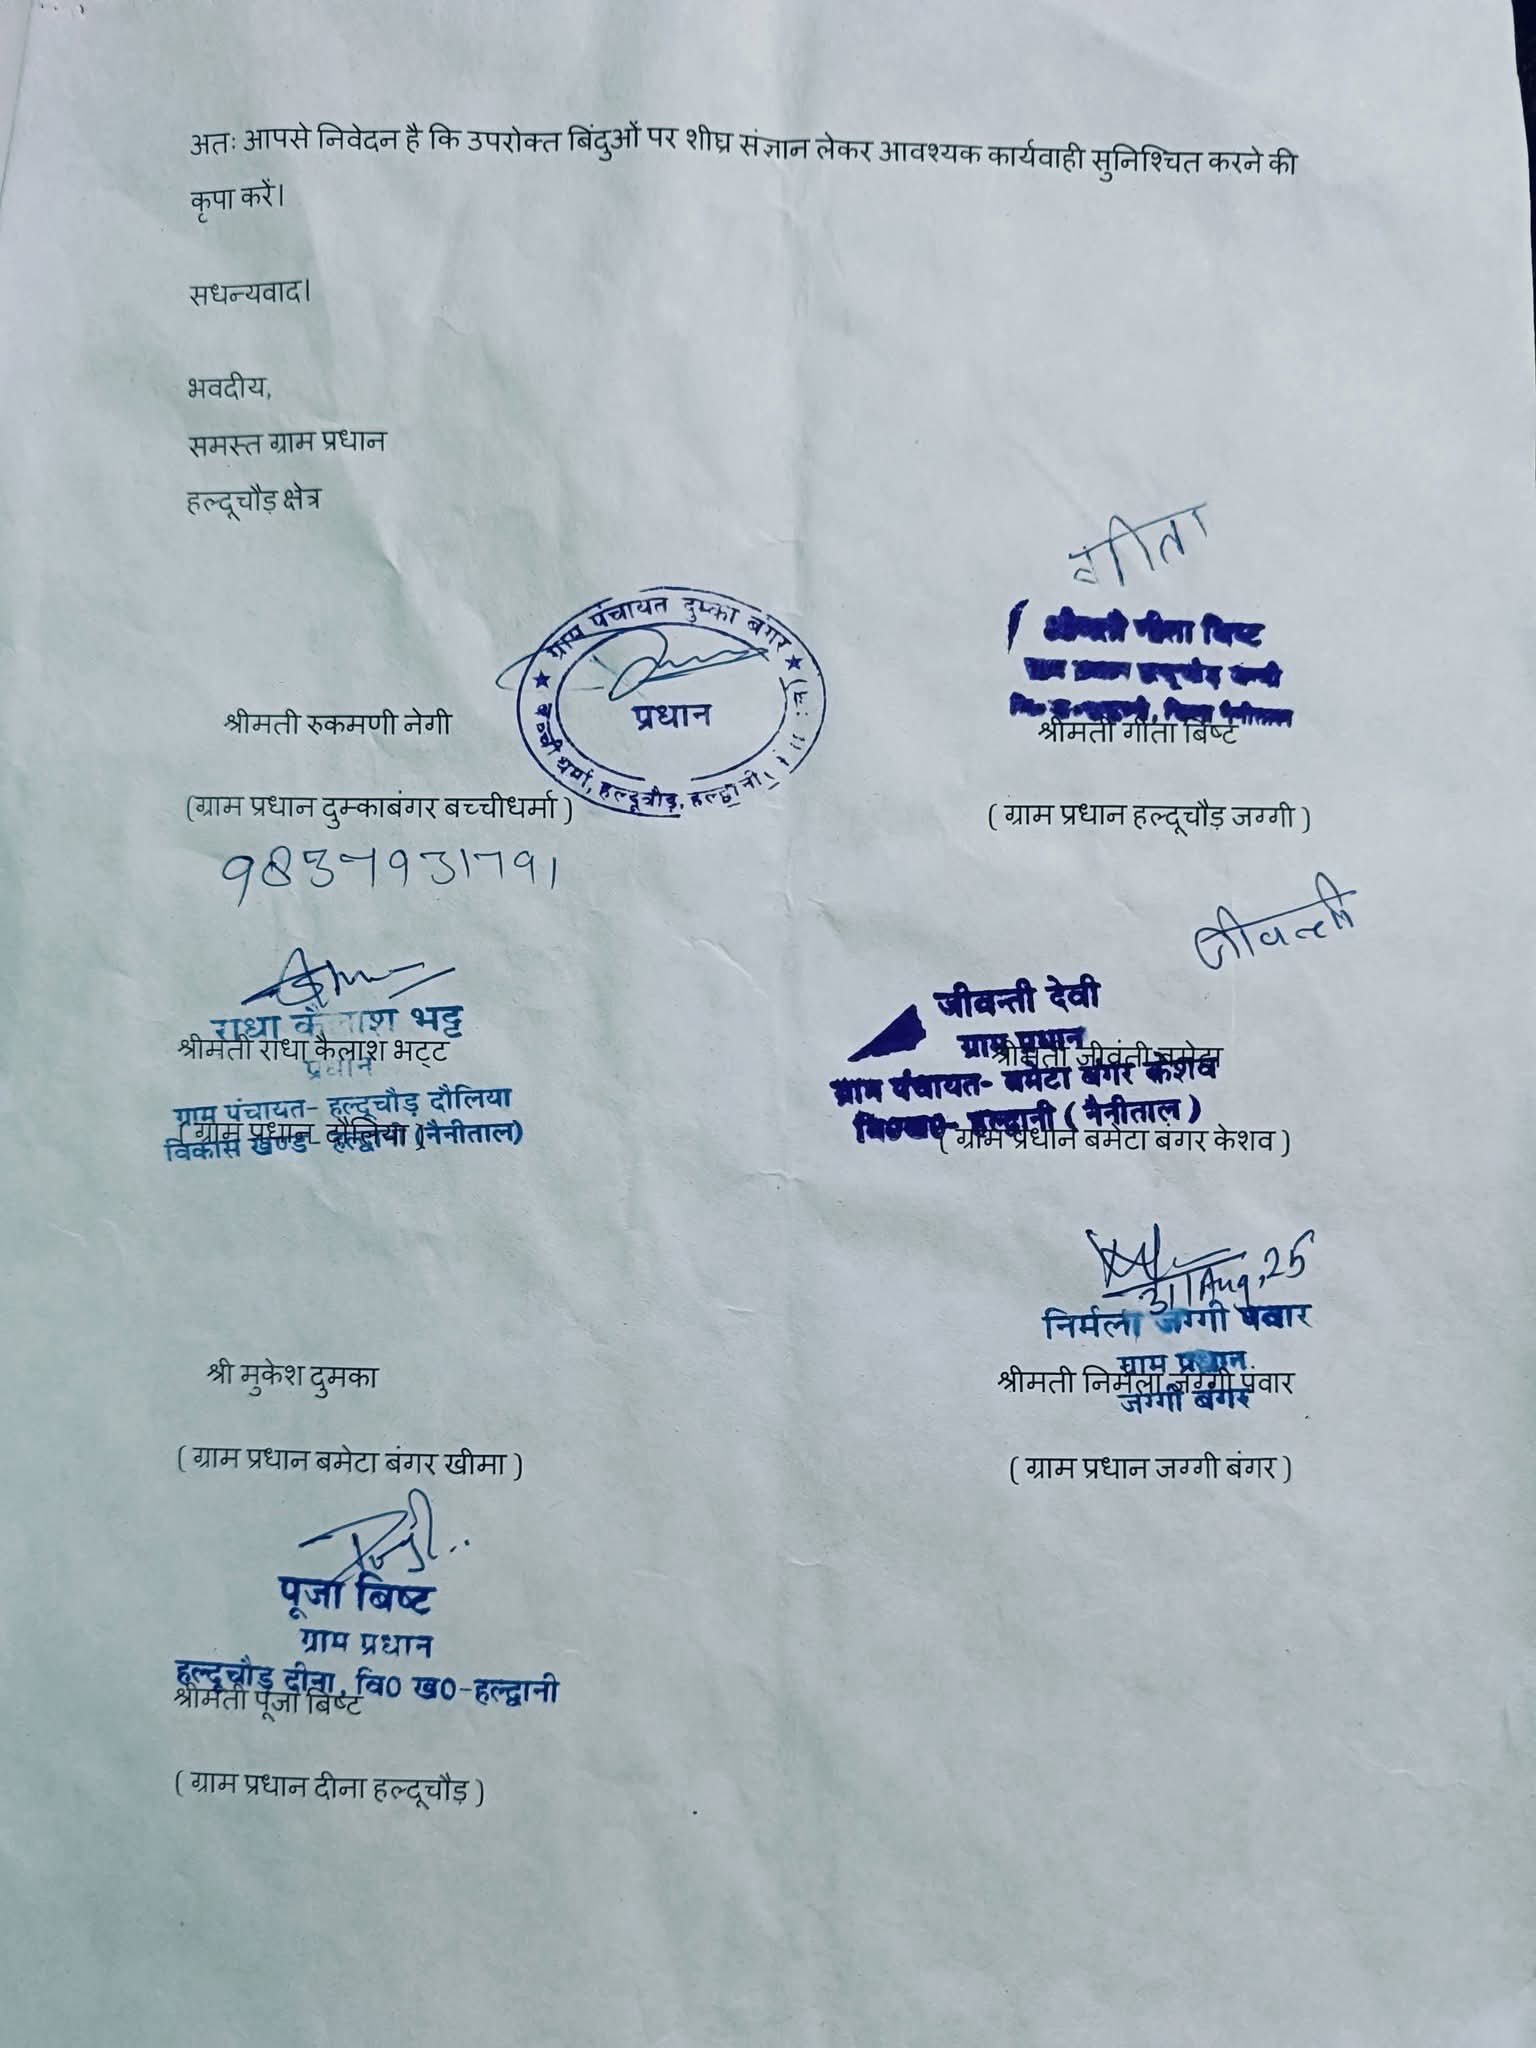 अतः आपसे निवेदन है कि उपरोक्त बिंदुओं पर शीघ्र संज्ञान लेकर आवश्यक कार्यवाही सुनिश्चित करने की
कृपा करें।
सधन्यवाद।
भवदीय,
समस्त ग्राम प्रधान
हल्दूचौड़ क्षेत्र
ग्राम पंचायत दुम्का बंगर
प्रधान
बच्ची धर्मा, हल्दूचौड़, हल्द्वानी
श्रीमती रुकमणी नेगी
(ग्राम प्रधान दुम्काबंगर बच्चीधर्मा )
9837931791
गीता
श्रीमती गीता बिष्ट
श्रीमती गीता बिष्ट
( ग्राम प्रधान हल्दूचौड़ जग्गी )
राधा कैलाश भट्ट
श्रीमती राधा कैलाश भट्ट
प्रधान
ग्राम पंचायत- हल्दूचौड़ दौलिया
( ग्राम प्रधान दौलिया )
विकास खण्ड- हल्द्वानी (नैनीताल)
जीवन्ती
जीवन्ती देवी
ग्राम प्रधान
श्रीमती जीवंती बमेटा
ग्राम पंचायत- बमेटा बंगर केशव
वि0ख0- हल्द्वानी ( नैनीताल )
( ग्राम प्रधान बमेटा बंगर केशव )
श्री मुकेश दुमका
( ग्राम प्रधान बमेटा बंगर खीमा )
31 Aug, 25
निर्मला जग्गी पंवार
ग्राम प्रधान
श्रीमती निर्मला जग्गी पंवार
जग्गी बंगर
( ग्राम प्रधान जग्गी बंगर )
पूजा बिष्ट
ग्राम प्रधान
हल्दूचौड़ दीना, वि0 ख0-हल्द्वानी
श्रीमती पूजा बिष्ट
( ग्राम प्रधान दीना हल्दूचौड़ )